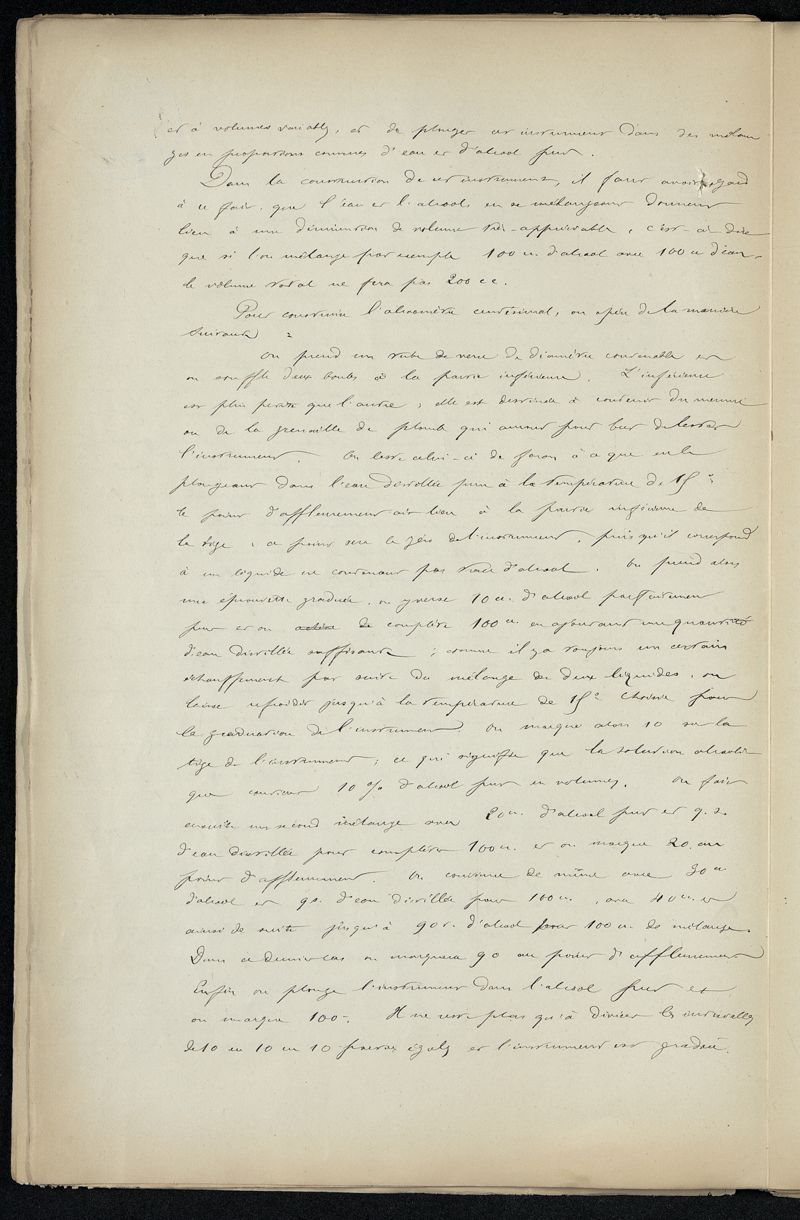 et à volumes variables, et de plonger cet instrument dans des mélan
ges en proportions connues d'eau et d'alcool pur.
Dans la construction de cet instrument, il faut avoir égard
à ce fait, que l'eau et l'alcool, en se mélangeant donnent
lieu à une diminution de volume très-appréciable, c'est-à-dire
que si l'on mélange par exemple 100 cc. d'alcool avec 100 cc d'eau,
le volume total ne fera pas 200 cc.
Pour construire l'alcoomètre centésimal, on opère de la manière
suivante :
On prend un tube de verre de diamètre convenable et
on souffle deux boules à la partie inférieure. L'inférieure
est plus petite que l'autre ; elle est destinée à contenir du mercure
ou de la grenaille de plomb qui auront pour but de lester
l'instrument. On leste celui-ci de façon à ce que en le
plongeant dans l'eau distillée pure à la température de 15°
le point d'affleurement ait lieu à la partie inférieure de
la tige, ce point sera le zéro de l'instrument, puisqu'il correspond
à un liquide ne contenant pas trace d'alcool. On prend alors
une éprouvette graduée, on y verse 10 cc. d'alcool parfaitement
pur et on de complète 100 cc. en ajoutant une quantité
d'eau distillée suffisante ; comme il y a toujours un certain
échauffement par suite du mélange des deux liquides, on
laisse refroidir jusqu'à la température de 15° choisie pour
la graduation de l'instrument. On marque alors 10 sur la
tige de l'instrument ; ce qui signifie que la solution alcooli
que contient 10 % d'alcool pur en volumes. On fait
ensuite un second mélange avec 20 cc. d'alcool pur et q.s.
d'eau distillée pour compléter 100 cc. et on marque 20 au
point d'affleurement. On continue de même avec 30 cc
d'alcool et qs. d'eau distillée pour 100 cc., avec 40 cc. et
ainsi de suite jusqu'à 90 c. d'alcool pour 100 cc. de mélange.
Dans ce dernier cas on marquera 90 au point d'affleurement
Enfin on plonge l'instrument dans l'alcool pur et
on marque 100. Il ne reste plus qu'à diviser les intervalles
de 10 en 10 en 10 parties égales et l'instrument est gradué.